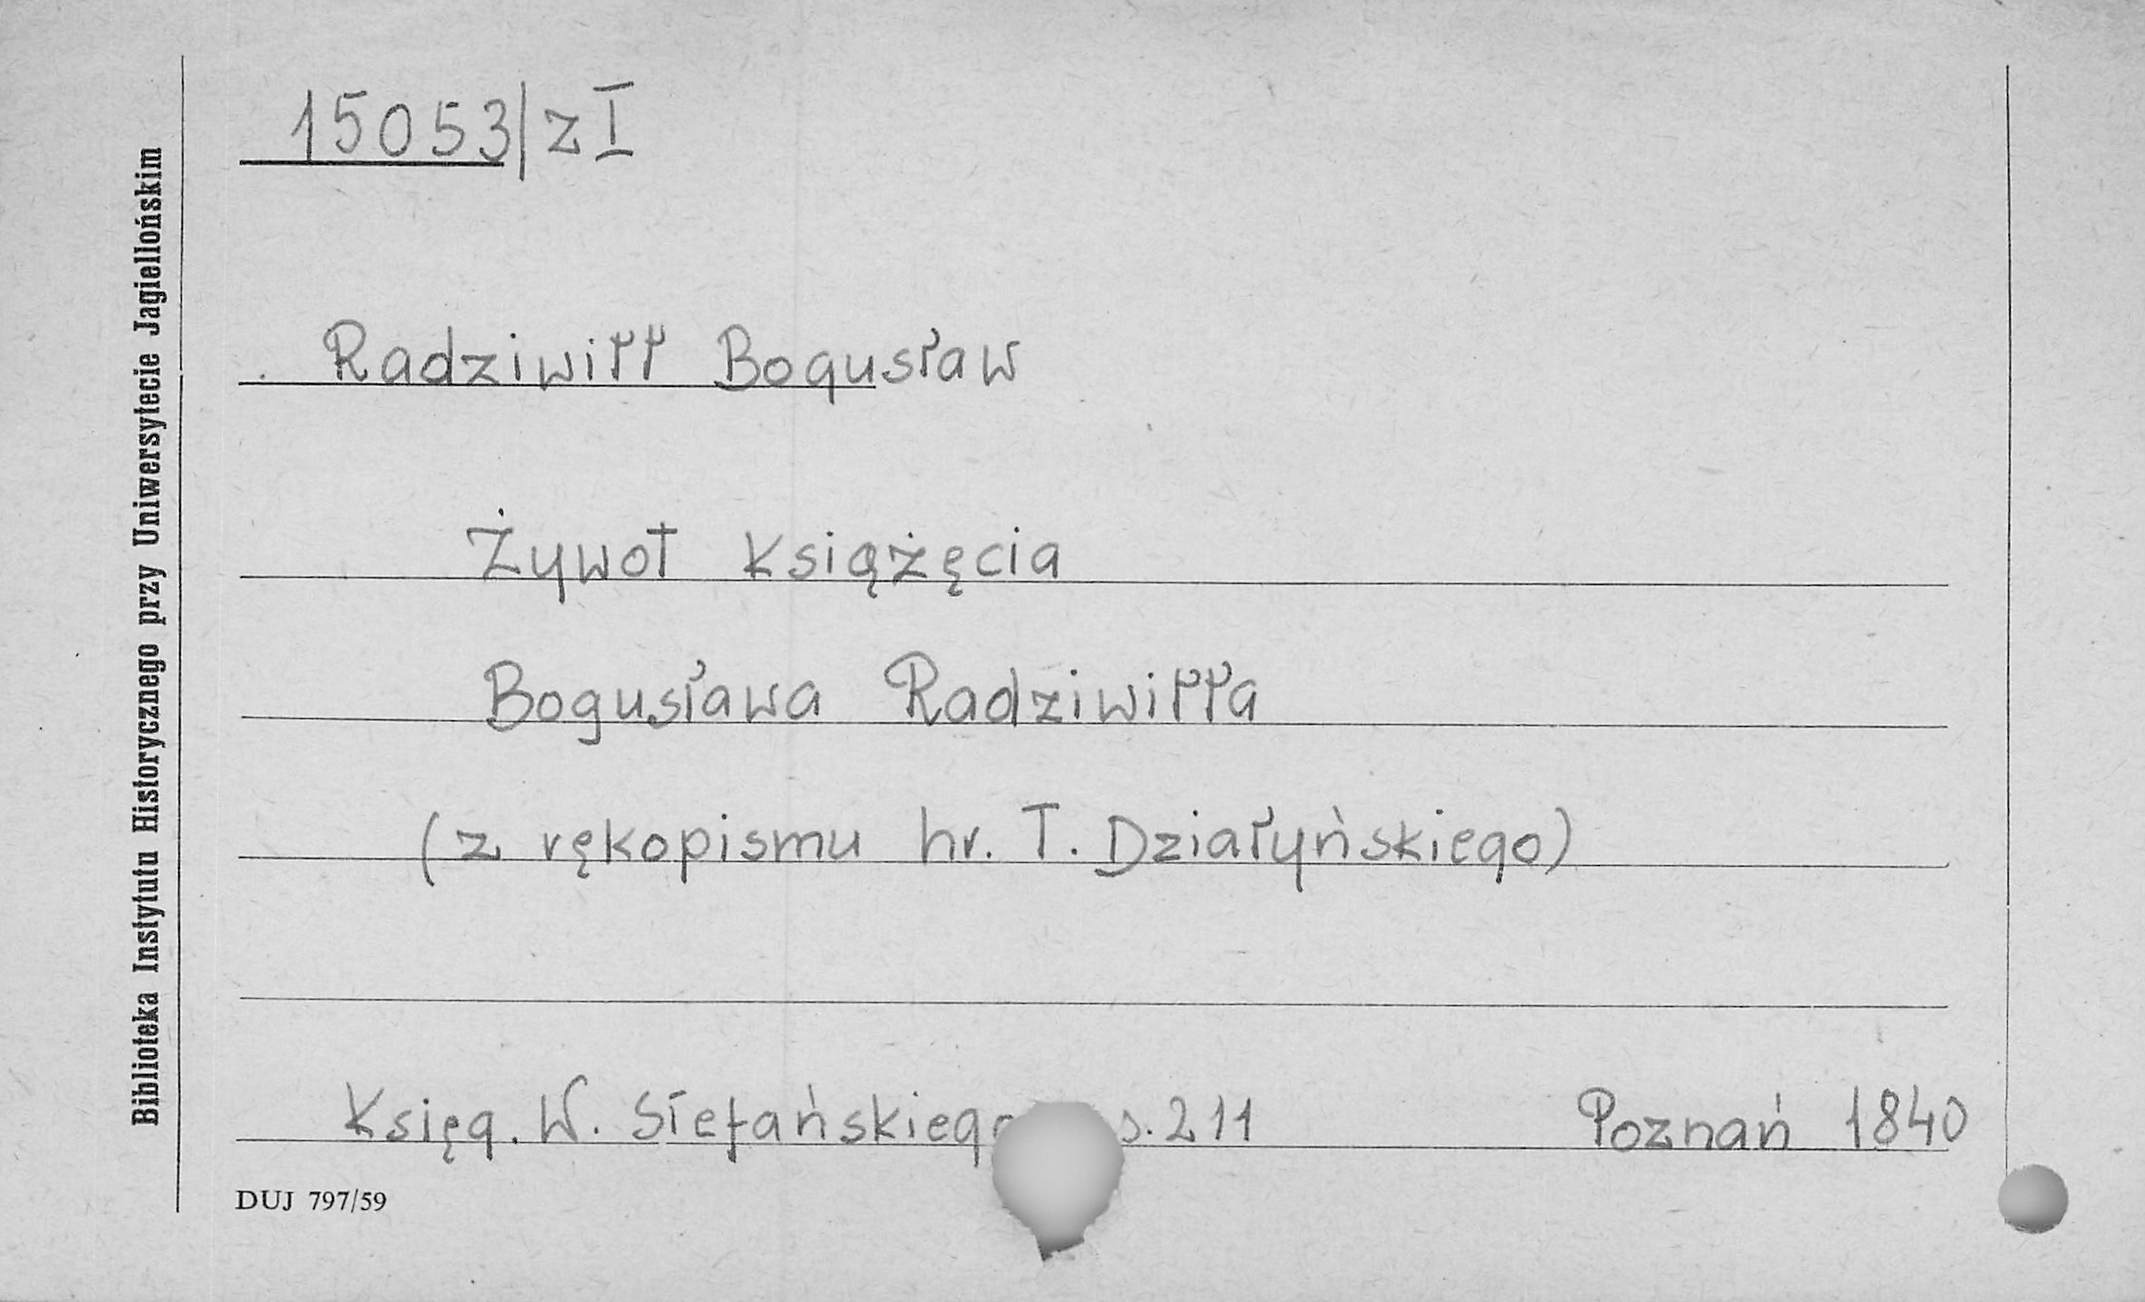 15053/z I
Radziwiłł Bogusław
Żywot Książęcia
Bogusława Radziwiłła
(z rękopismu hr. T. Działyńskiego)
Księg. W. Stefańskiego s. 211 Poznań 1840
DUJ 797/59
Biblioteka Instytutu Historycznego przy Uniwersytecie Jagiellońskim